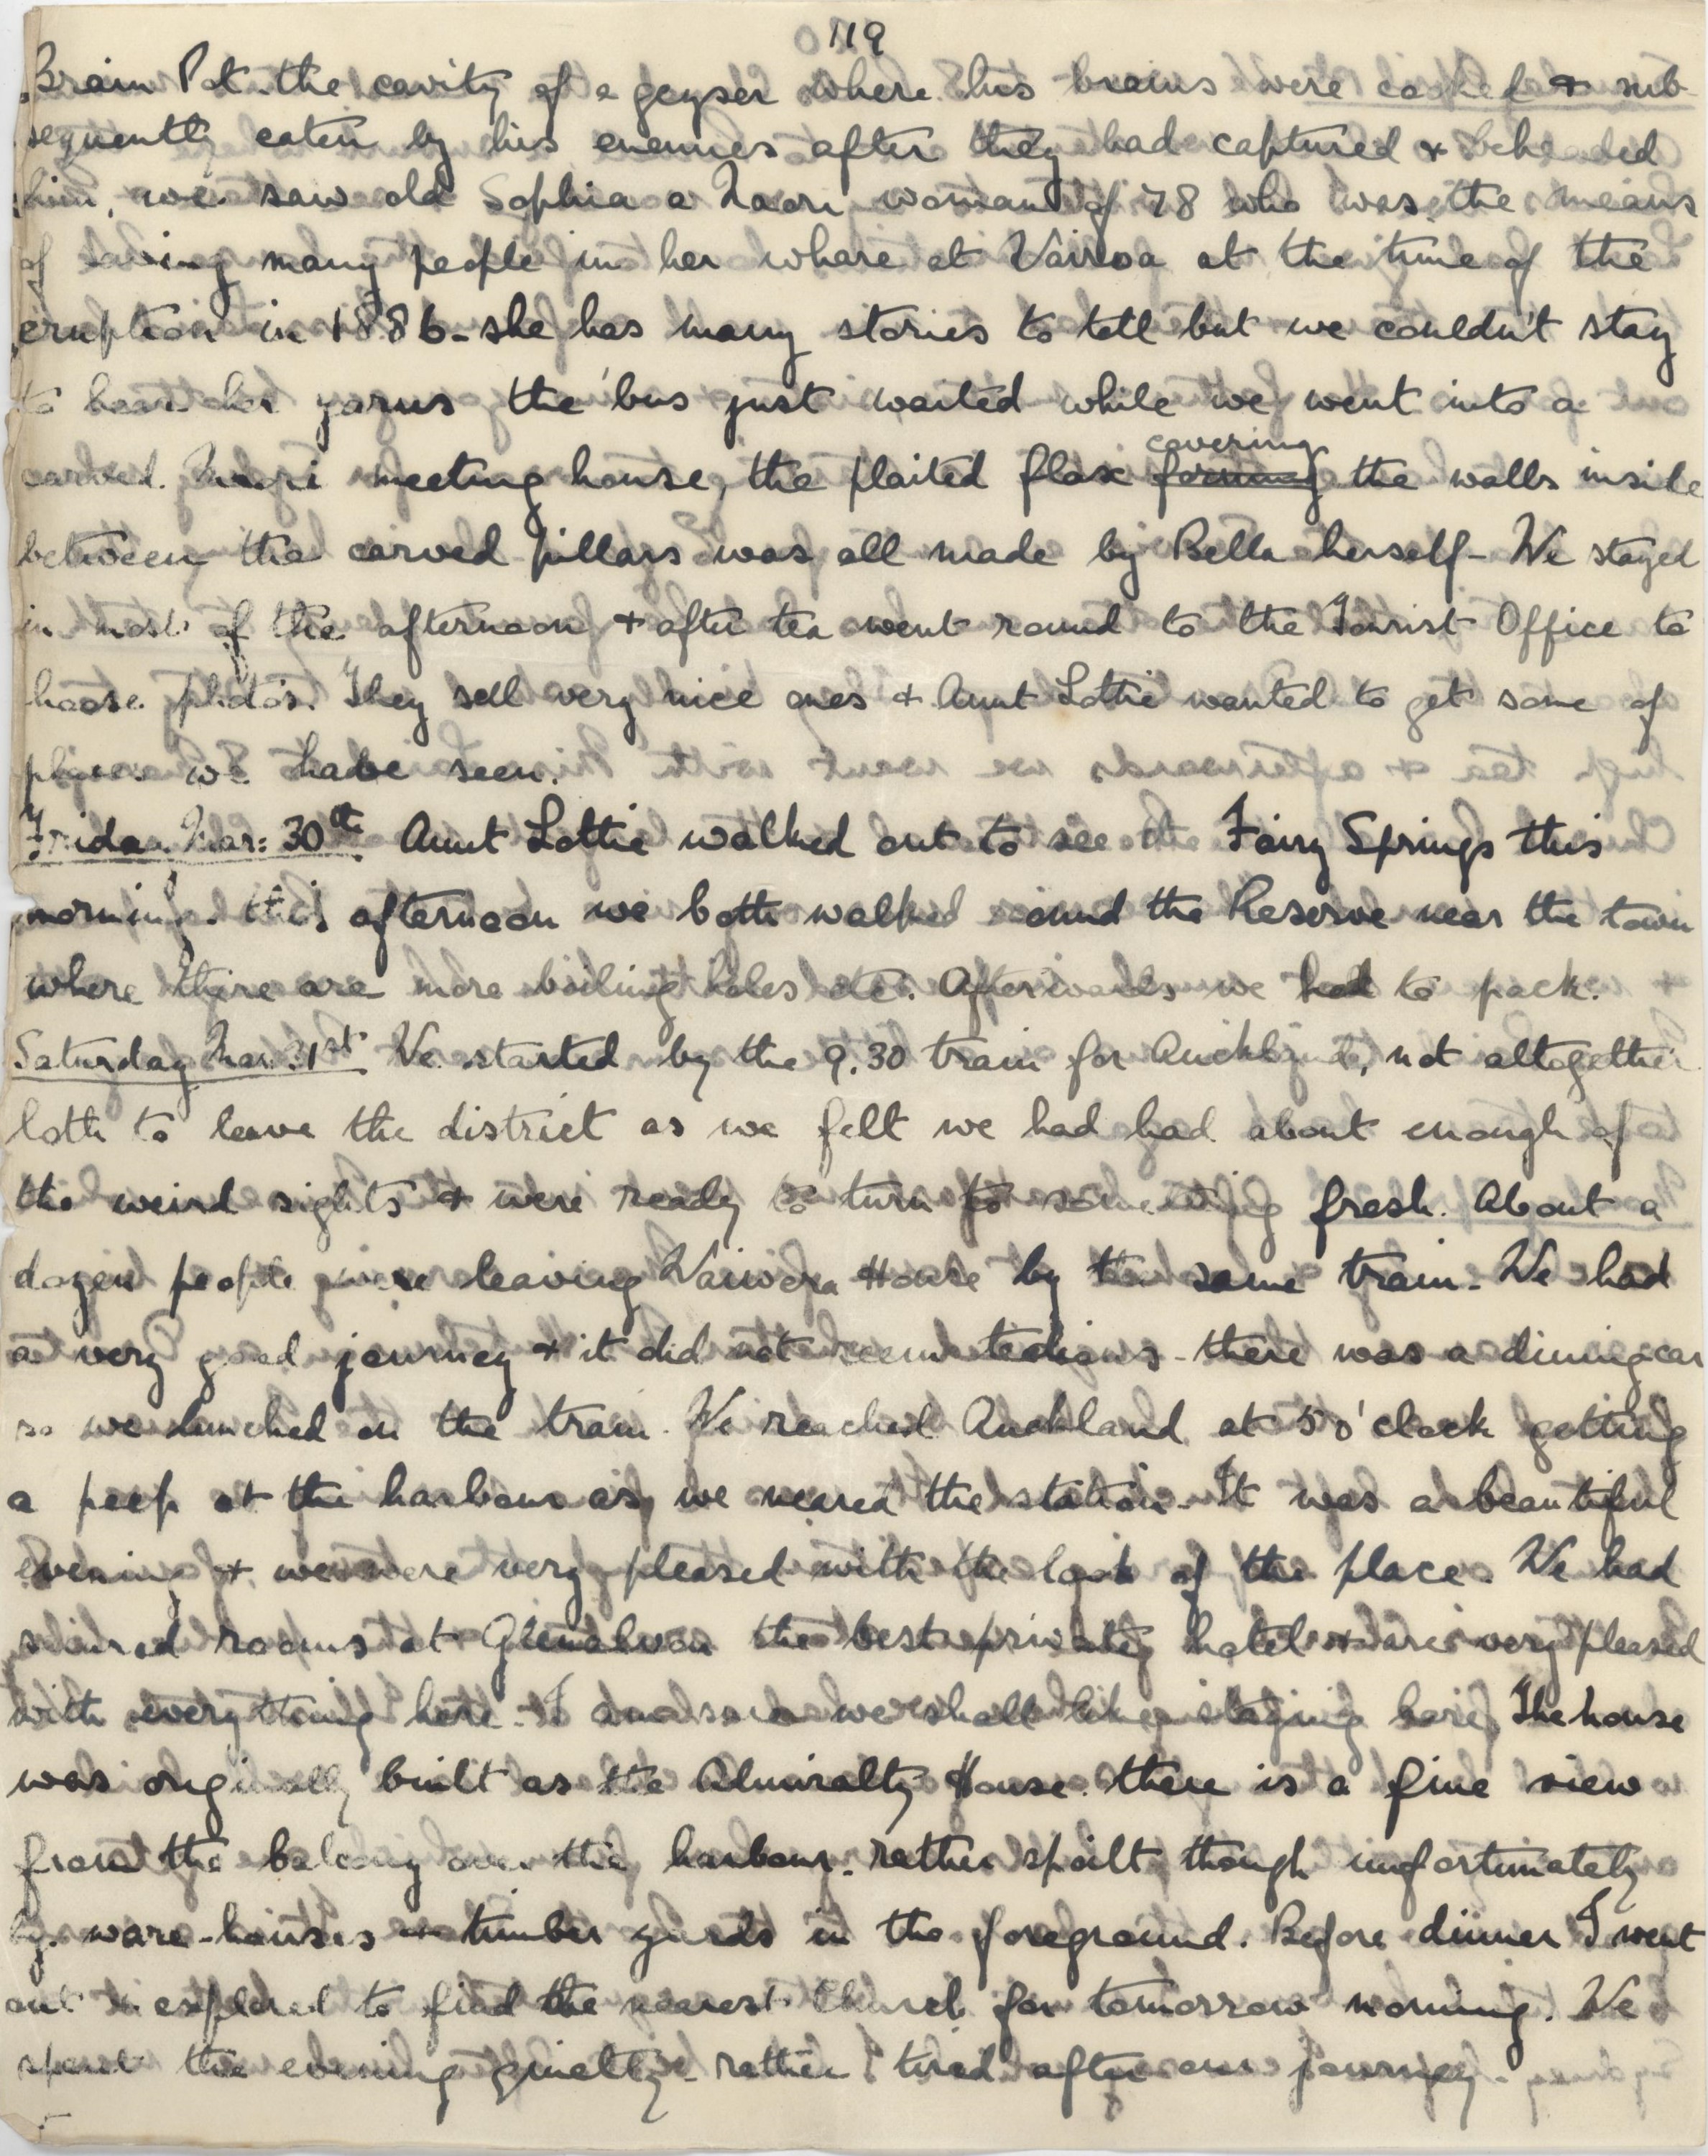 119
Brain Pot the cavity of a geyser where his brains were cooked & sub-
sequently eaten by his enemies after they had captured & beheaded
him. we saw old Sophia a Maori woman of 78 who was the means
of saving many people in her whare at Wairoa at the time of the
eruption in 1886 - she has many stories to tell but we couldn't stay
to hear her yarns the 'bus just waited while we went into a
carved Maori meeting house, the plaited flax covering forming the walls inside
between the carved pillars was all made by Bella herself - We stayed
in most of the afternoon & after tea went round to the Tourist Office to
choose photos. They sell very nice ones & Aunt Lottie wanted to get some of
places we have seen.
Friday Mar: 30th Aunt Lottie walked out to see the Fairy Springs this
morning. this afternoon we both walked round the Reserve near the town
where there are more boiling holes etc. Afterwards we had to pack.
Saturday Mar. 31st We started by the 9.30 train for Auckland, not altogether
loth to leave the district as we felt we had had about enough of
the weird sights & were ready to turn to something fresh. About a
dozen people were leaving Waiwera House by the same train. We had
a very good journey & it did not seem tedious - there was a dining car
so we lunched on the train. We reached Auckland at 5 o'clock getting
a peep at the harbour as we neared the station. It was a beautiful
evening & we were very pleased with the look of the place. We had
secured rooms at Glenalvon the best private hotel & are very pleased
with everything here - I am sure we shall like staying here. The house
was originally built as the Admiralty House. there is a fine view
from the balcony over the harbour - rather spoilt though unfortunately
by ware-houses & timber yards in the foreground. Before dinner I went
out & explored to find the nearest Church for tomorrow morning. We
spent the evening quietly - rather tired after our journey.